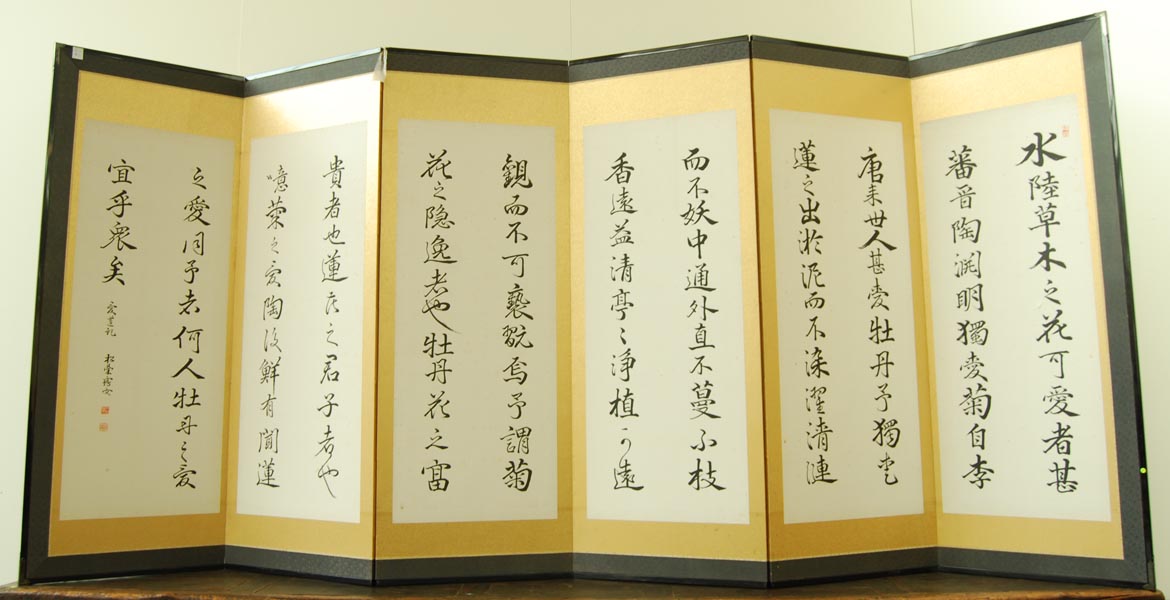 水陸草木之花可愛者甚
蕃晋陶渕明獨愛菊自李
唐来世人甚愛牡丹予獨愛
蓮之出淤泥而不染濯清漣
而不妖中通外直不蔓不枝
香遠益清亭々浄植可遠
観而不可褻翫焉予謂菊
花之隠逸者也牡丹花之富
貴者也蓮花之君子者也
噫菊之愛陶後鮮有聞蓮
之愛同予者何人牡丹之愛
宜乎衆矣